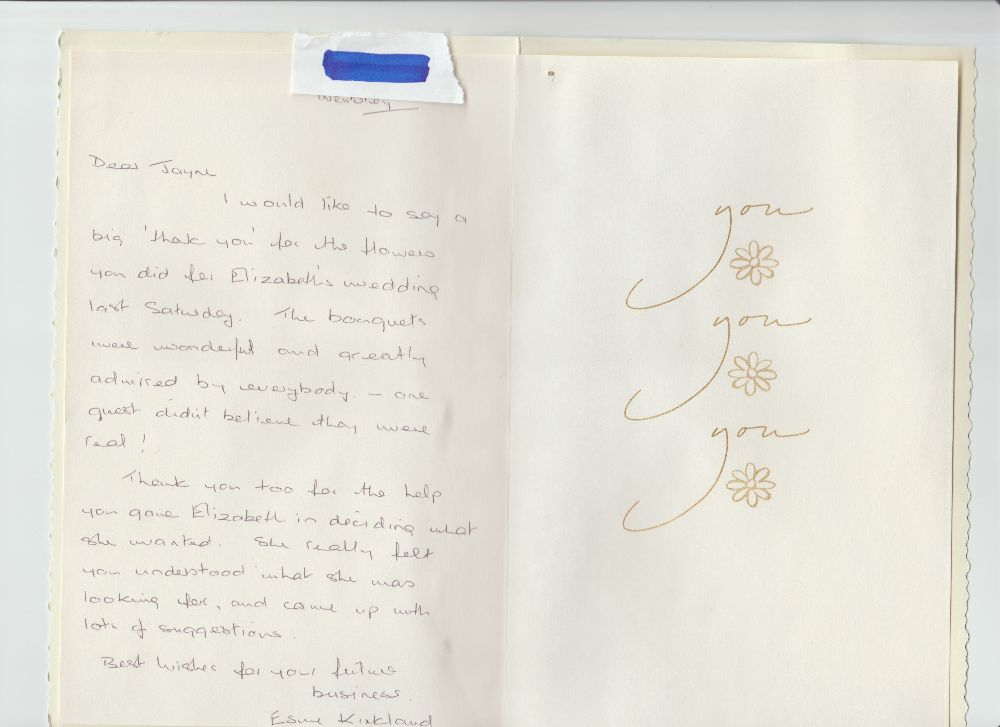 Dear Jayne
I would like to say a
big 'thank you' for the flowers
you did for Elizabeth's wedding
last Saturday. The bouquets
were wonderful and greatly
admired by everybody. – one
guest didn't believe they were
real!
Thank you too for the help
you gave Elizabeth in deciding what
she wanted. She really felt
you understood what she was
looking for, and came up with
lots of suggestions.
Best wishes for your future
business.
Esme Kirkland
you
you
you